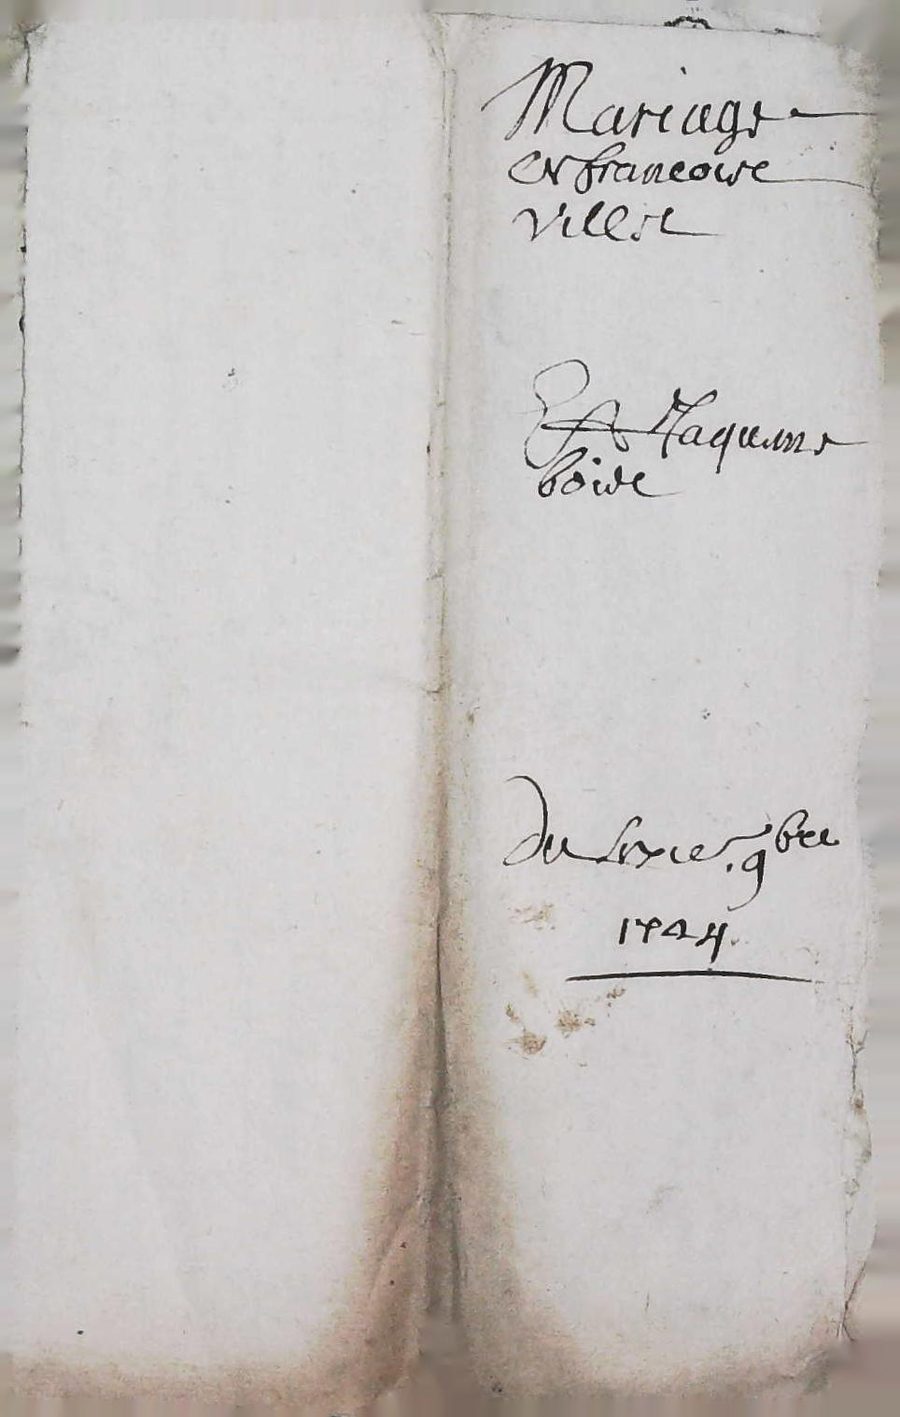 Mariage
francoise
villet

Et Jaquenne
boise

Du sixie 9bre
1744